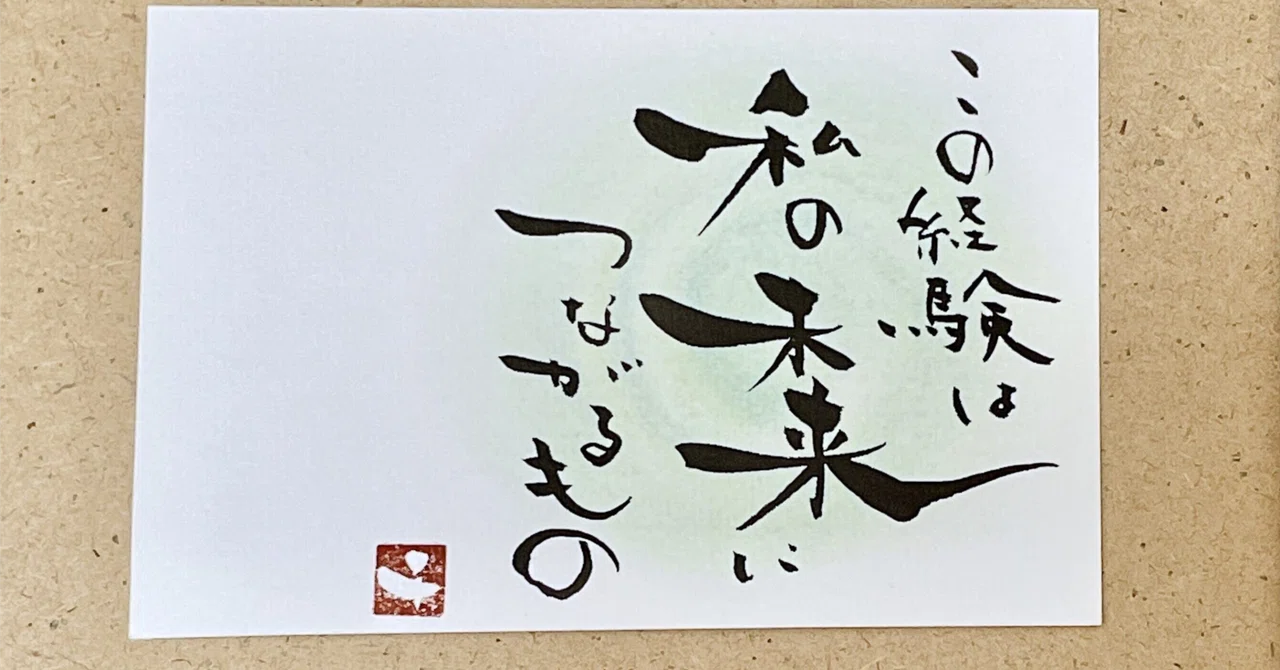 この経験は
私の未来に
つながるもの